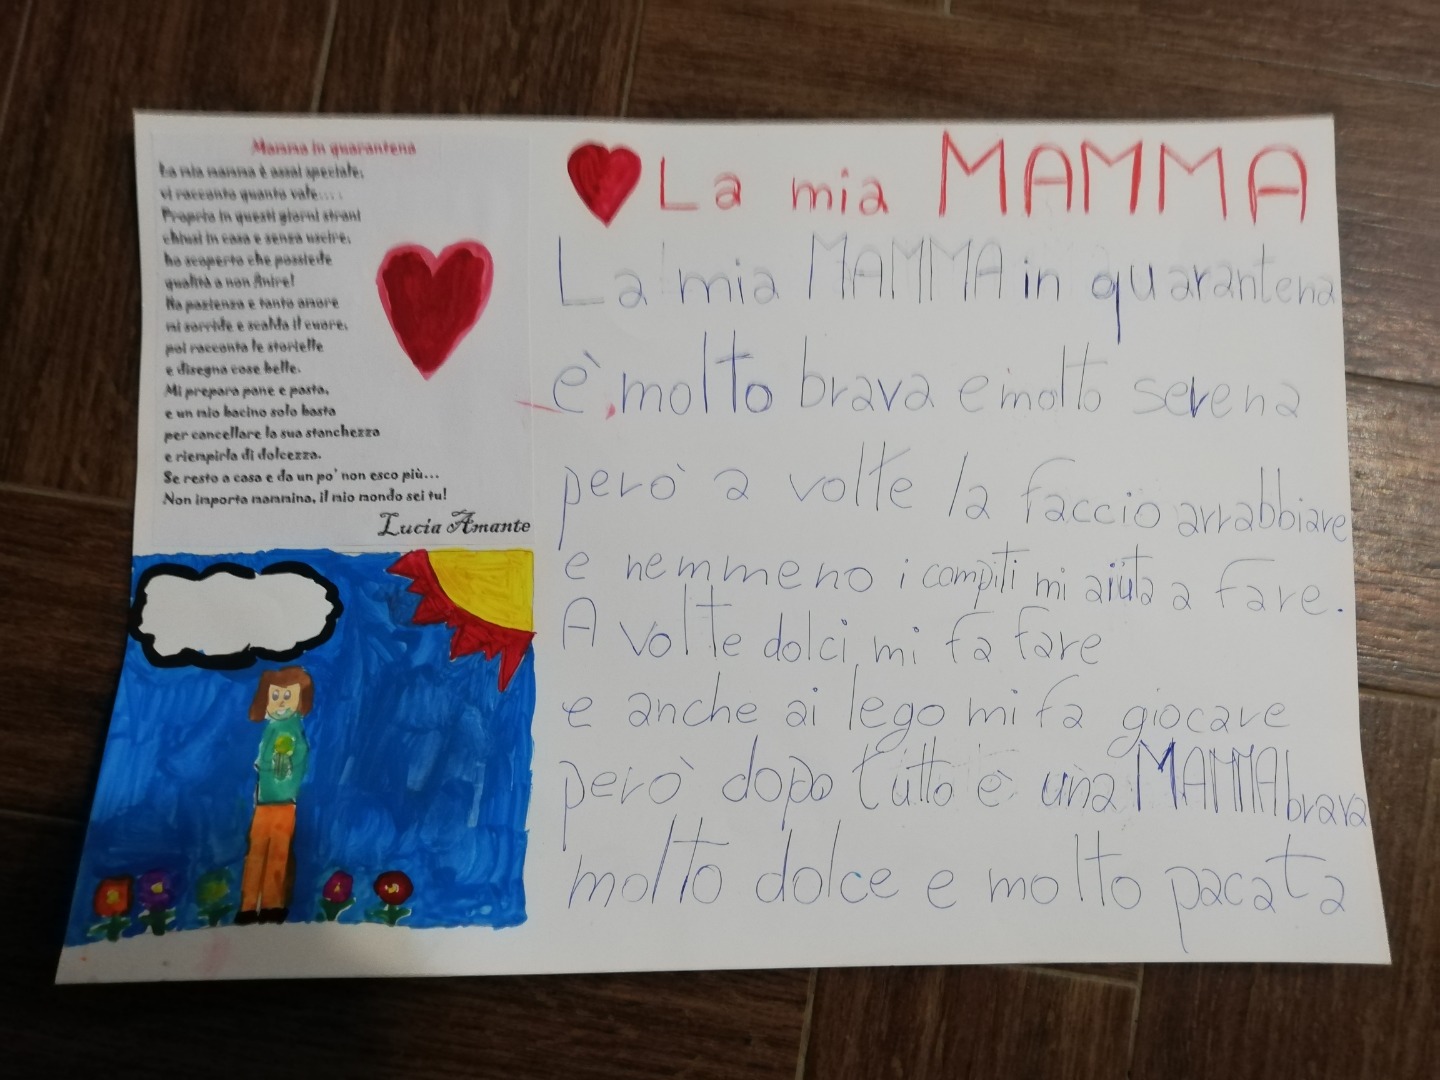 Mamma in quarantena
La mia mamma è assai speciale,
vi racconto quanto vale....
Proprio in questi giorni strani
chiusi in casa e senza uscire,
ho scoperto che possiede
qualità a non finire!
Ha pazienza e tanto amore
mi sorride e scalda il cuore,
poi racconta le storielle
e disegna cose belle.
Mi prepara pane e pasta,
e un mio bacino solo basta
per cancellare la sua stanchezza
e riempirla di dolcezza.
Se resto a casa e da un po' non esco più...
Non importa mammina, il mio mondo sei tu!
Lucia Amante
La mia MAMMA
La mia MAMMA in quarantena
è molto brava e molto serena
però a volte la faccio arrabbiare
e nemmeno i compiti mi aiuta a fare.
A volte dolci mi fa fare
e anche ai lego mi fa giocare
però dopo tutto è una MAMMA brava
molto dolce e molto pacata